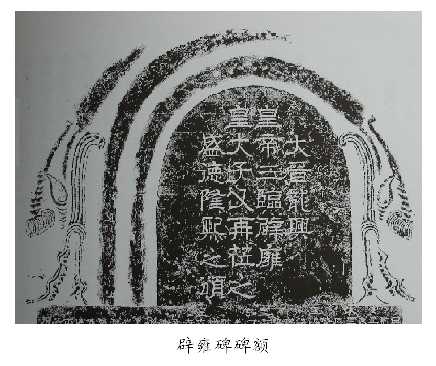 大晉龍興
皇帝三臨辟雍
皇大子又再莅之
盛德隆熙之頌
辟雍碑碑额